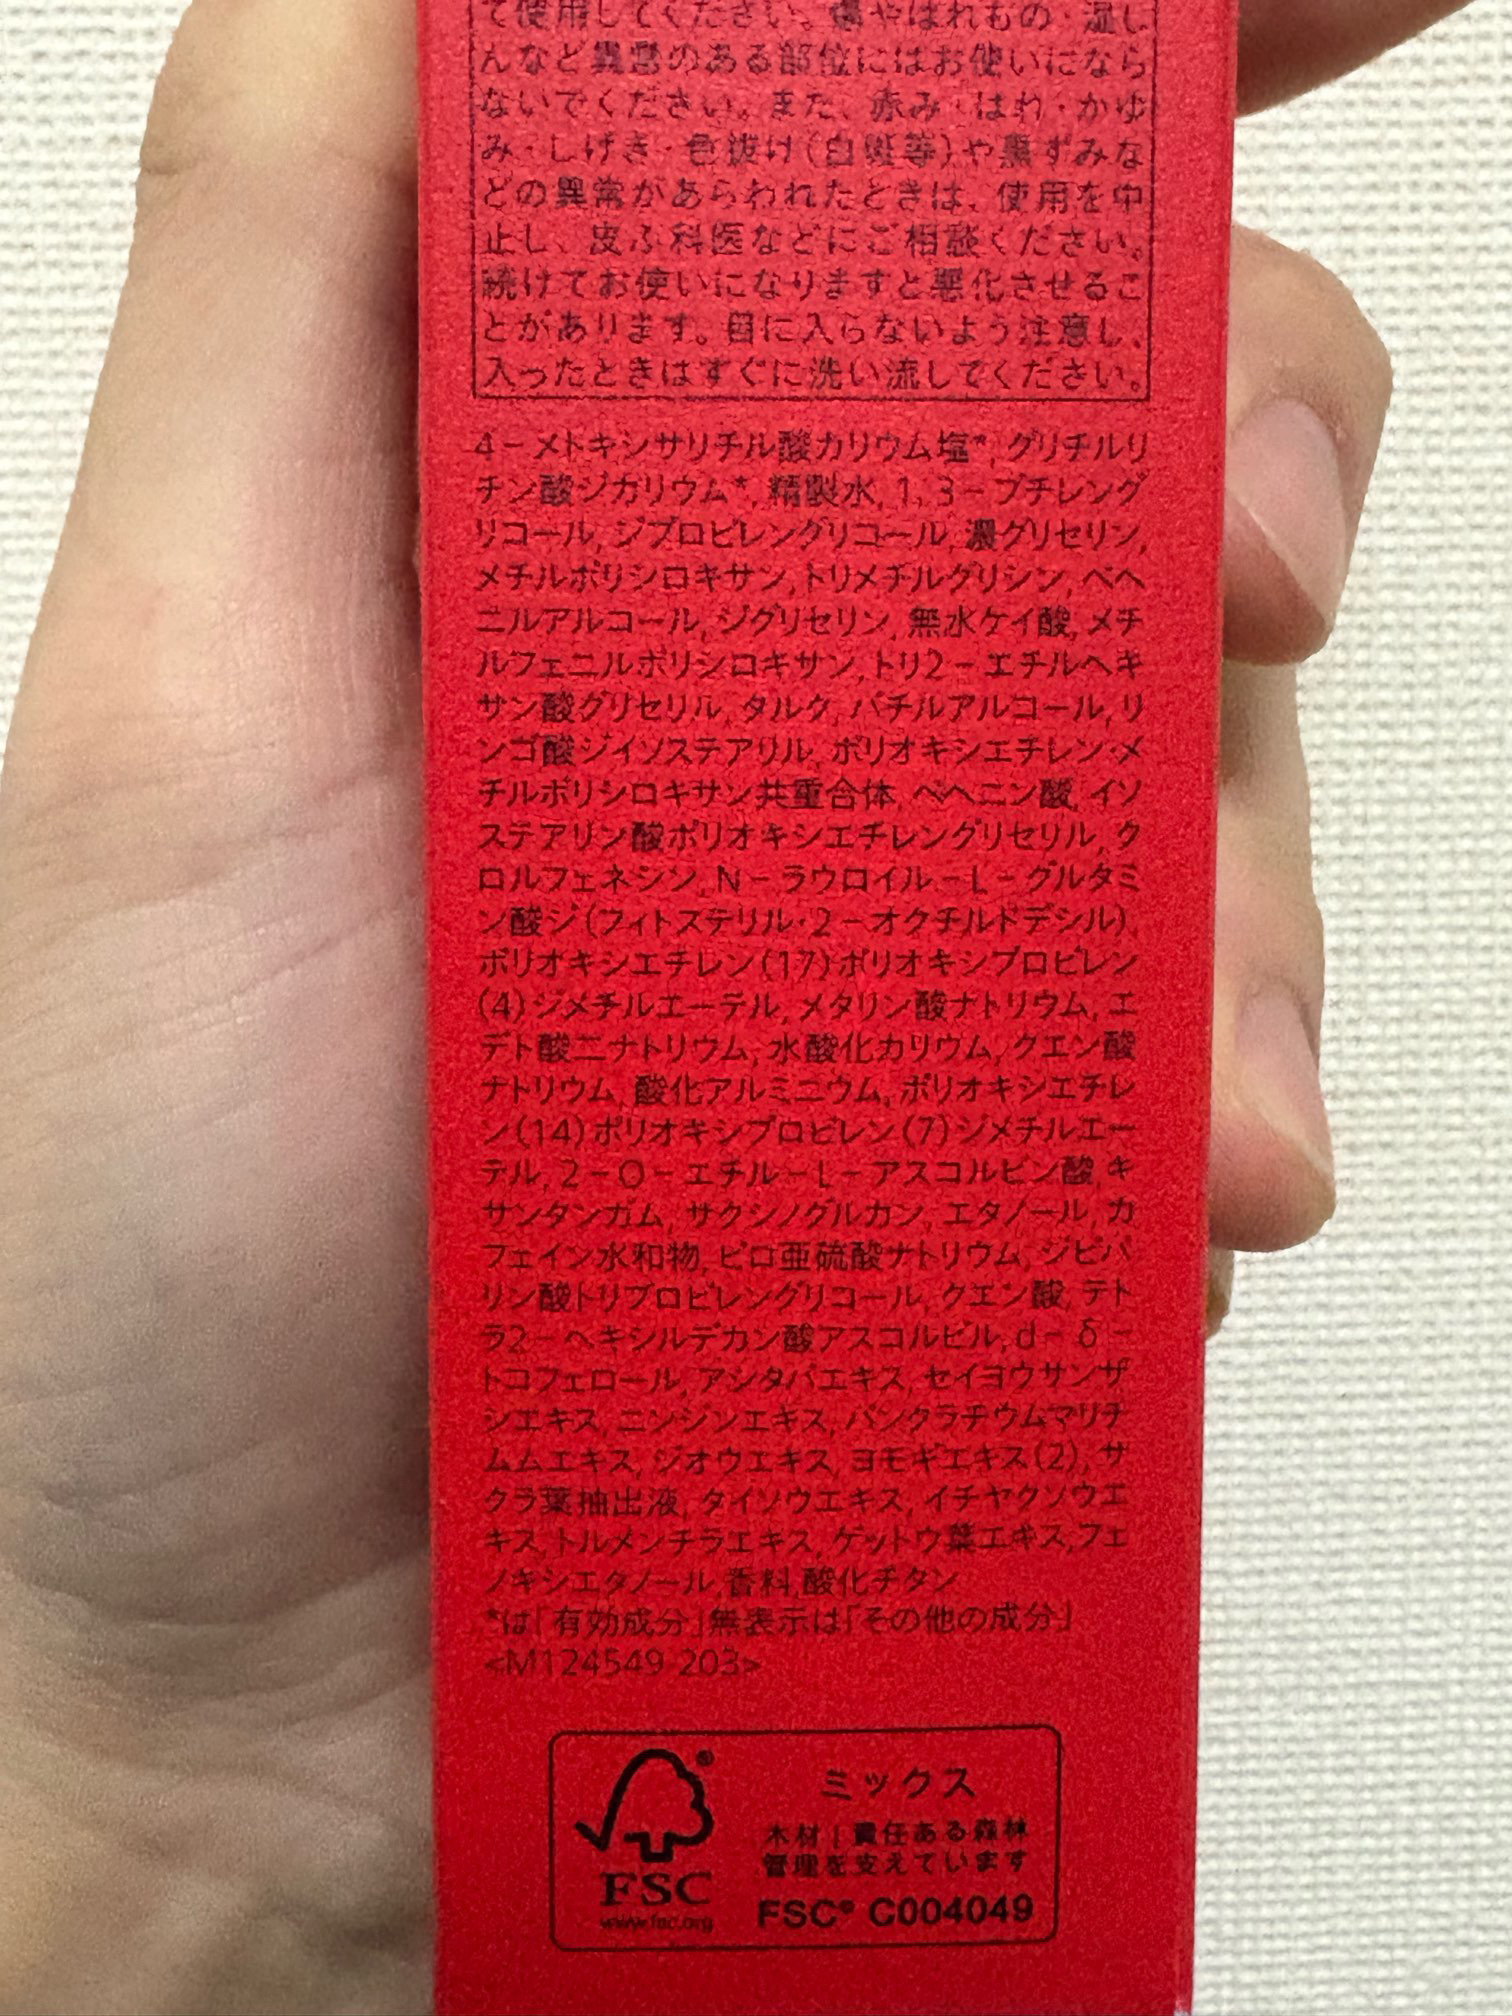 て使用してください。傷やはれもの・湿し
んなど異常のある部位にはお使いになら
ないでください。また、赤み・はれ・かゆ
み・しげき・色抜け(白斑等)や黒ずみな
どの異常があらわれたときは、使用を中
止し、皮ふ科医などにご相談ください。
続けてお使いになりますと悪化させるこ
とがあります。目に入らないよう注意し、
入ったときはすぐに洗い流してください。
4−メトキシサリチル酸カリウム塩*, グリチルリ
チン酸ジカリウム*, 精製水, 1, 3−ブチレング
リコール, ジプロピレングリコール, 濃グリセリン,
メチルポリシロキサン, トリメチルグリシン, ベヘ
ニルアルコール, ジグリセリン, 無水ケイ酸, メチ
ルフェニルポリシロキサン, トリ2−エチルヘキ
サン酸グリセリル, タルク, バチルアルコール, リ
ンゴ酸ジイソステアリル, ポリオキシエチレン・メ
チルポリシロキサン共重合体, ベヘニン酸, イソ
ステアリン酸ポリオキシエチレングリセリル, ク
ロルフェネシン, N−ラウロイル−L−グルタミ
ン酸ジ(フィトステリル・2−オクチルドデシル),
ポリオキシエチレン(17)ポリオキシプロピレン
(4)ジメチルエーテル, メタリン酸ナトリウム, エ
デト酸二ナトリウム, 水酸化カリウム, クエン酸
ナトリウム, 酸化アルミニウム, ポリオキシエチレ
ン(14)ポリオキシプロピレン(7)ジメチルエー
テル, 2−O−エチル−L−アスコルビン酸, キ
サンタンガム, サクシノグルカン, エタノール, カ
フェイン水和物, ピロ亜硫酸ナトリウム, ジピバ
リン酸トリプロピレングリコール, クエン酸, テト
ラ2−ヘキシルデカン酸アスコルビル, d−δ−
トコフェロール, アシタバエキス, セイヨウサンザ
シエキス, ニンジンエキス, パンクラチウムマリチ
ムムエキス, ジオウエキス, ヨモギエキス(2), サ
クラ葉抽出液, タイソウエキス, イチヤクソウエ
キス, トルメンチラエキス, ゲットウ葉エキス, フェ
ノキシエタノール, 香料, 酸化チタン
*は「有効成分」無表示は「その他の成分」
<M124549-203>
ミックス
木材｜責任ある森林
管理を支えています
FSC® C004049
®
FSC
www.fsc.org